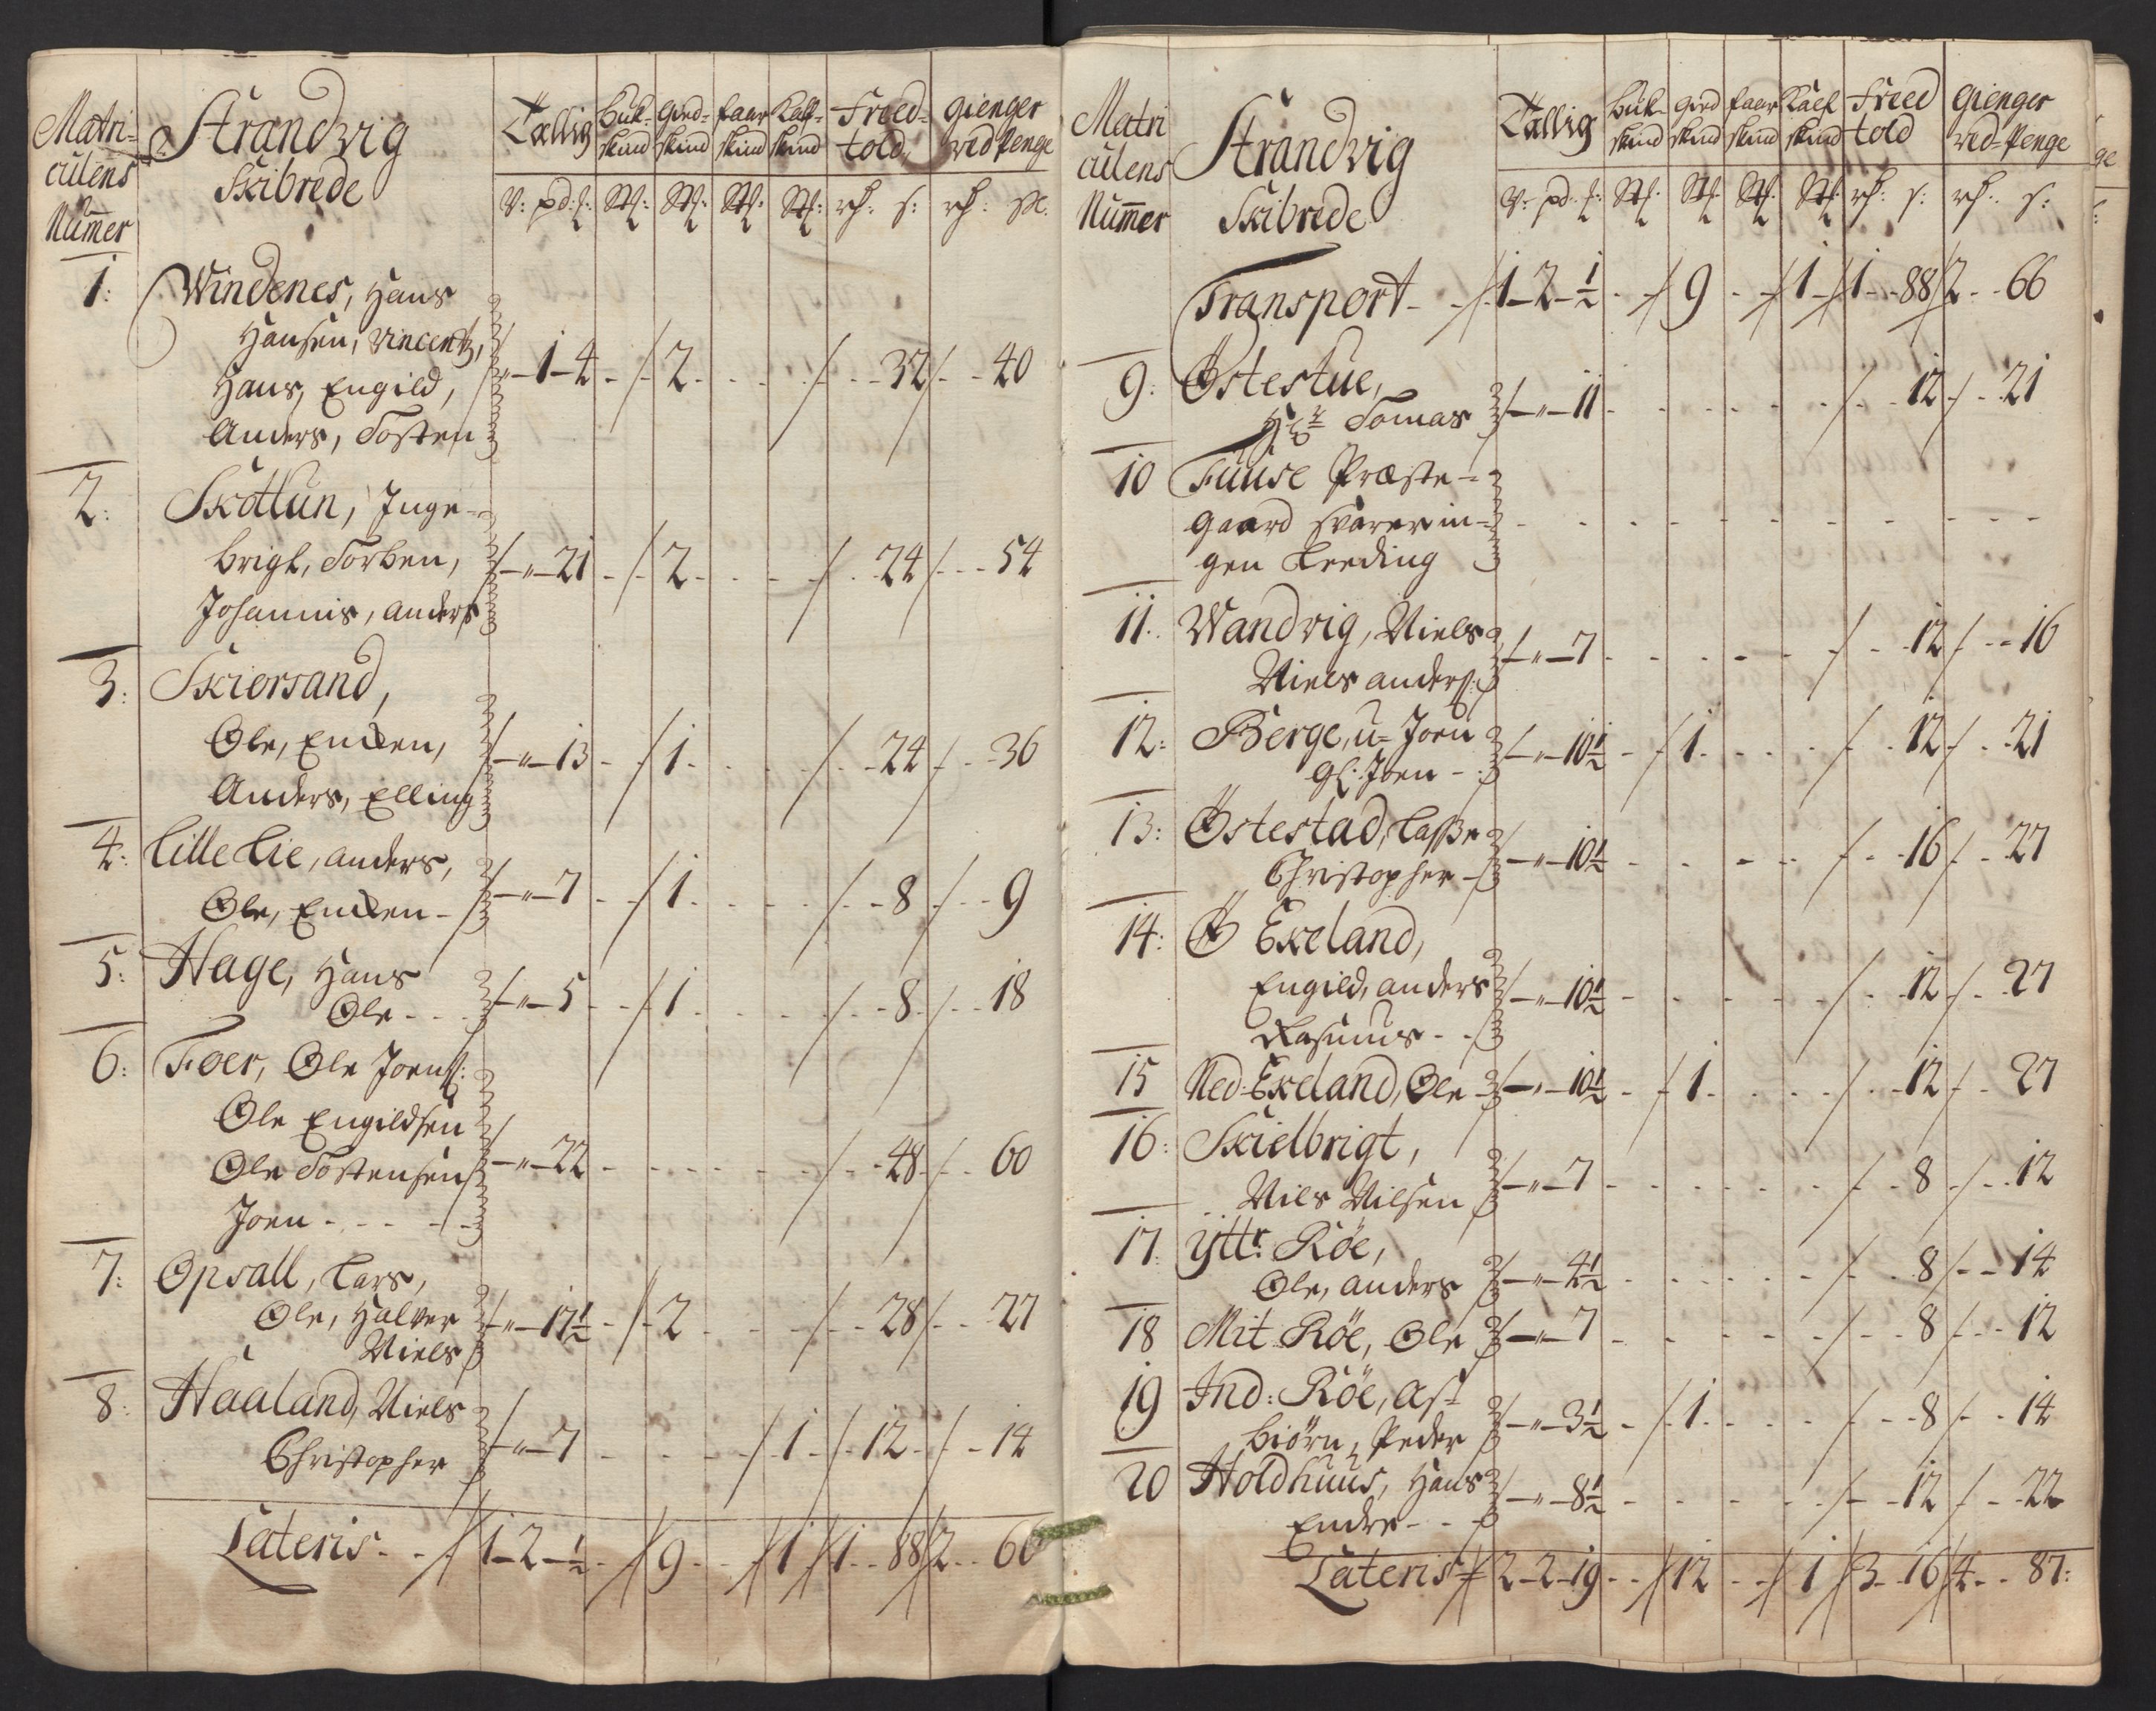 Matri-
culens
Nummer
Strandvig
Skibrede
Tællig
Buk-
skind
Gied-
skind
faar
skind
Kalf-
skind
Freed-
told
gienger
ved Penge
V: pd: s: St: St: St: St: rh: s: rh: sk.
1: Windenes, Hans
Hansen, Vincentz,
Hans, Engild, - 1 - 4 - 2 - - 32 - 40
Anders, Tosten
2: Skotlun, Inge-
brigt, Torben, - " - 21 - 2 - - 24 - 54
Johannis, anders
3: Skiørsand,
Ole, - " - 13 - 1 - - 24 - 36
Anders, Elling
4: Lille Lie, anders,
Ole, - " - 7 - 1 - - 8 - 9
5: Hage, Hans
Ole - - " - 5 - 1 - - 8 - 18
6: Foer, Ole Joens:
Ole Engildsen
Ole Tostensen - " - 22 - - 48 - 60
Joen - - -
7: Opsall, Lars,
Ole, Halver - " - 17½ - 2 - - 28 - 27
Niels
8: Haaland, Niels
Christopher - " - 7 - - 1 - 12 - 14
Lateris - - 1 - 2 - ½ - 9 - - 1 1 - 88 2 - 66
Matri
culens
Nummer
Strandvig
Skibrede
Tællig
Buk-
skind
Gied
skind
faar
skind
Kalf
skind
Freed
told
gienger
ved-Penge
V: pd: s: St: St: St: St: rh: s: rh: s:
Transport - 1 - 2 - ½ - 9 - - 1 1 - 88 2 - 66
9: Østestue,
Hr Tomas - " - 11 - - 12 - 21
10 Fuuse Præste-
gaard svarer in-
gen Leeding
11: Wandvig, Niels
Niels anders: - " - 7 - - 12 - 16
12: Berge, u= Joen
gl: Joen - - " - 10½ - 1 - - 12 - 21
13: Østestad, Lasse
Christopher - " - 10½ - - 16 - 27
14: Ø Exeland,
Engild, anders - " - 10½ - - 12 - 27
Rasmus - -
15 Ned-Exeland, Ole - " - 10½ - 1 - - 12 - 27
16: Skielbrigt,
Nils Nilsen - " - 7 - - 8 - 12
17: yttr: Røe,
Ole, anders - " - 4½ - - 8 - 14
18 Mit Røe, Ole - " - 7 - - 8 - 12
19 Ind: Røe, As-
biørn, Peder - " - 3½ - 1 - - 8 - 14
20 Holdhuus, Hans
Endre - - " - 8½ - - 12 - 22
Lateris 2 - 2 - 19 - 12 - - 1 3 - 16 4 - 87: